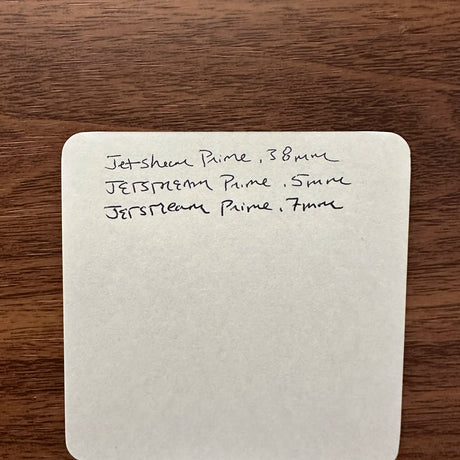 Jetstream Prime .38mm
JETSTREAM Prime .5mm
JETSTREAM Prime .7mm